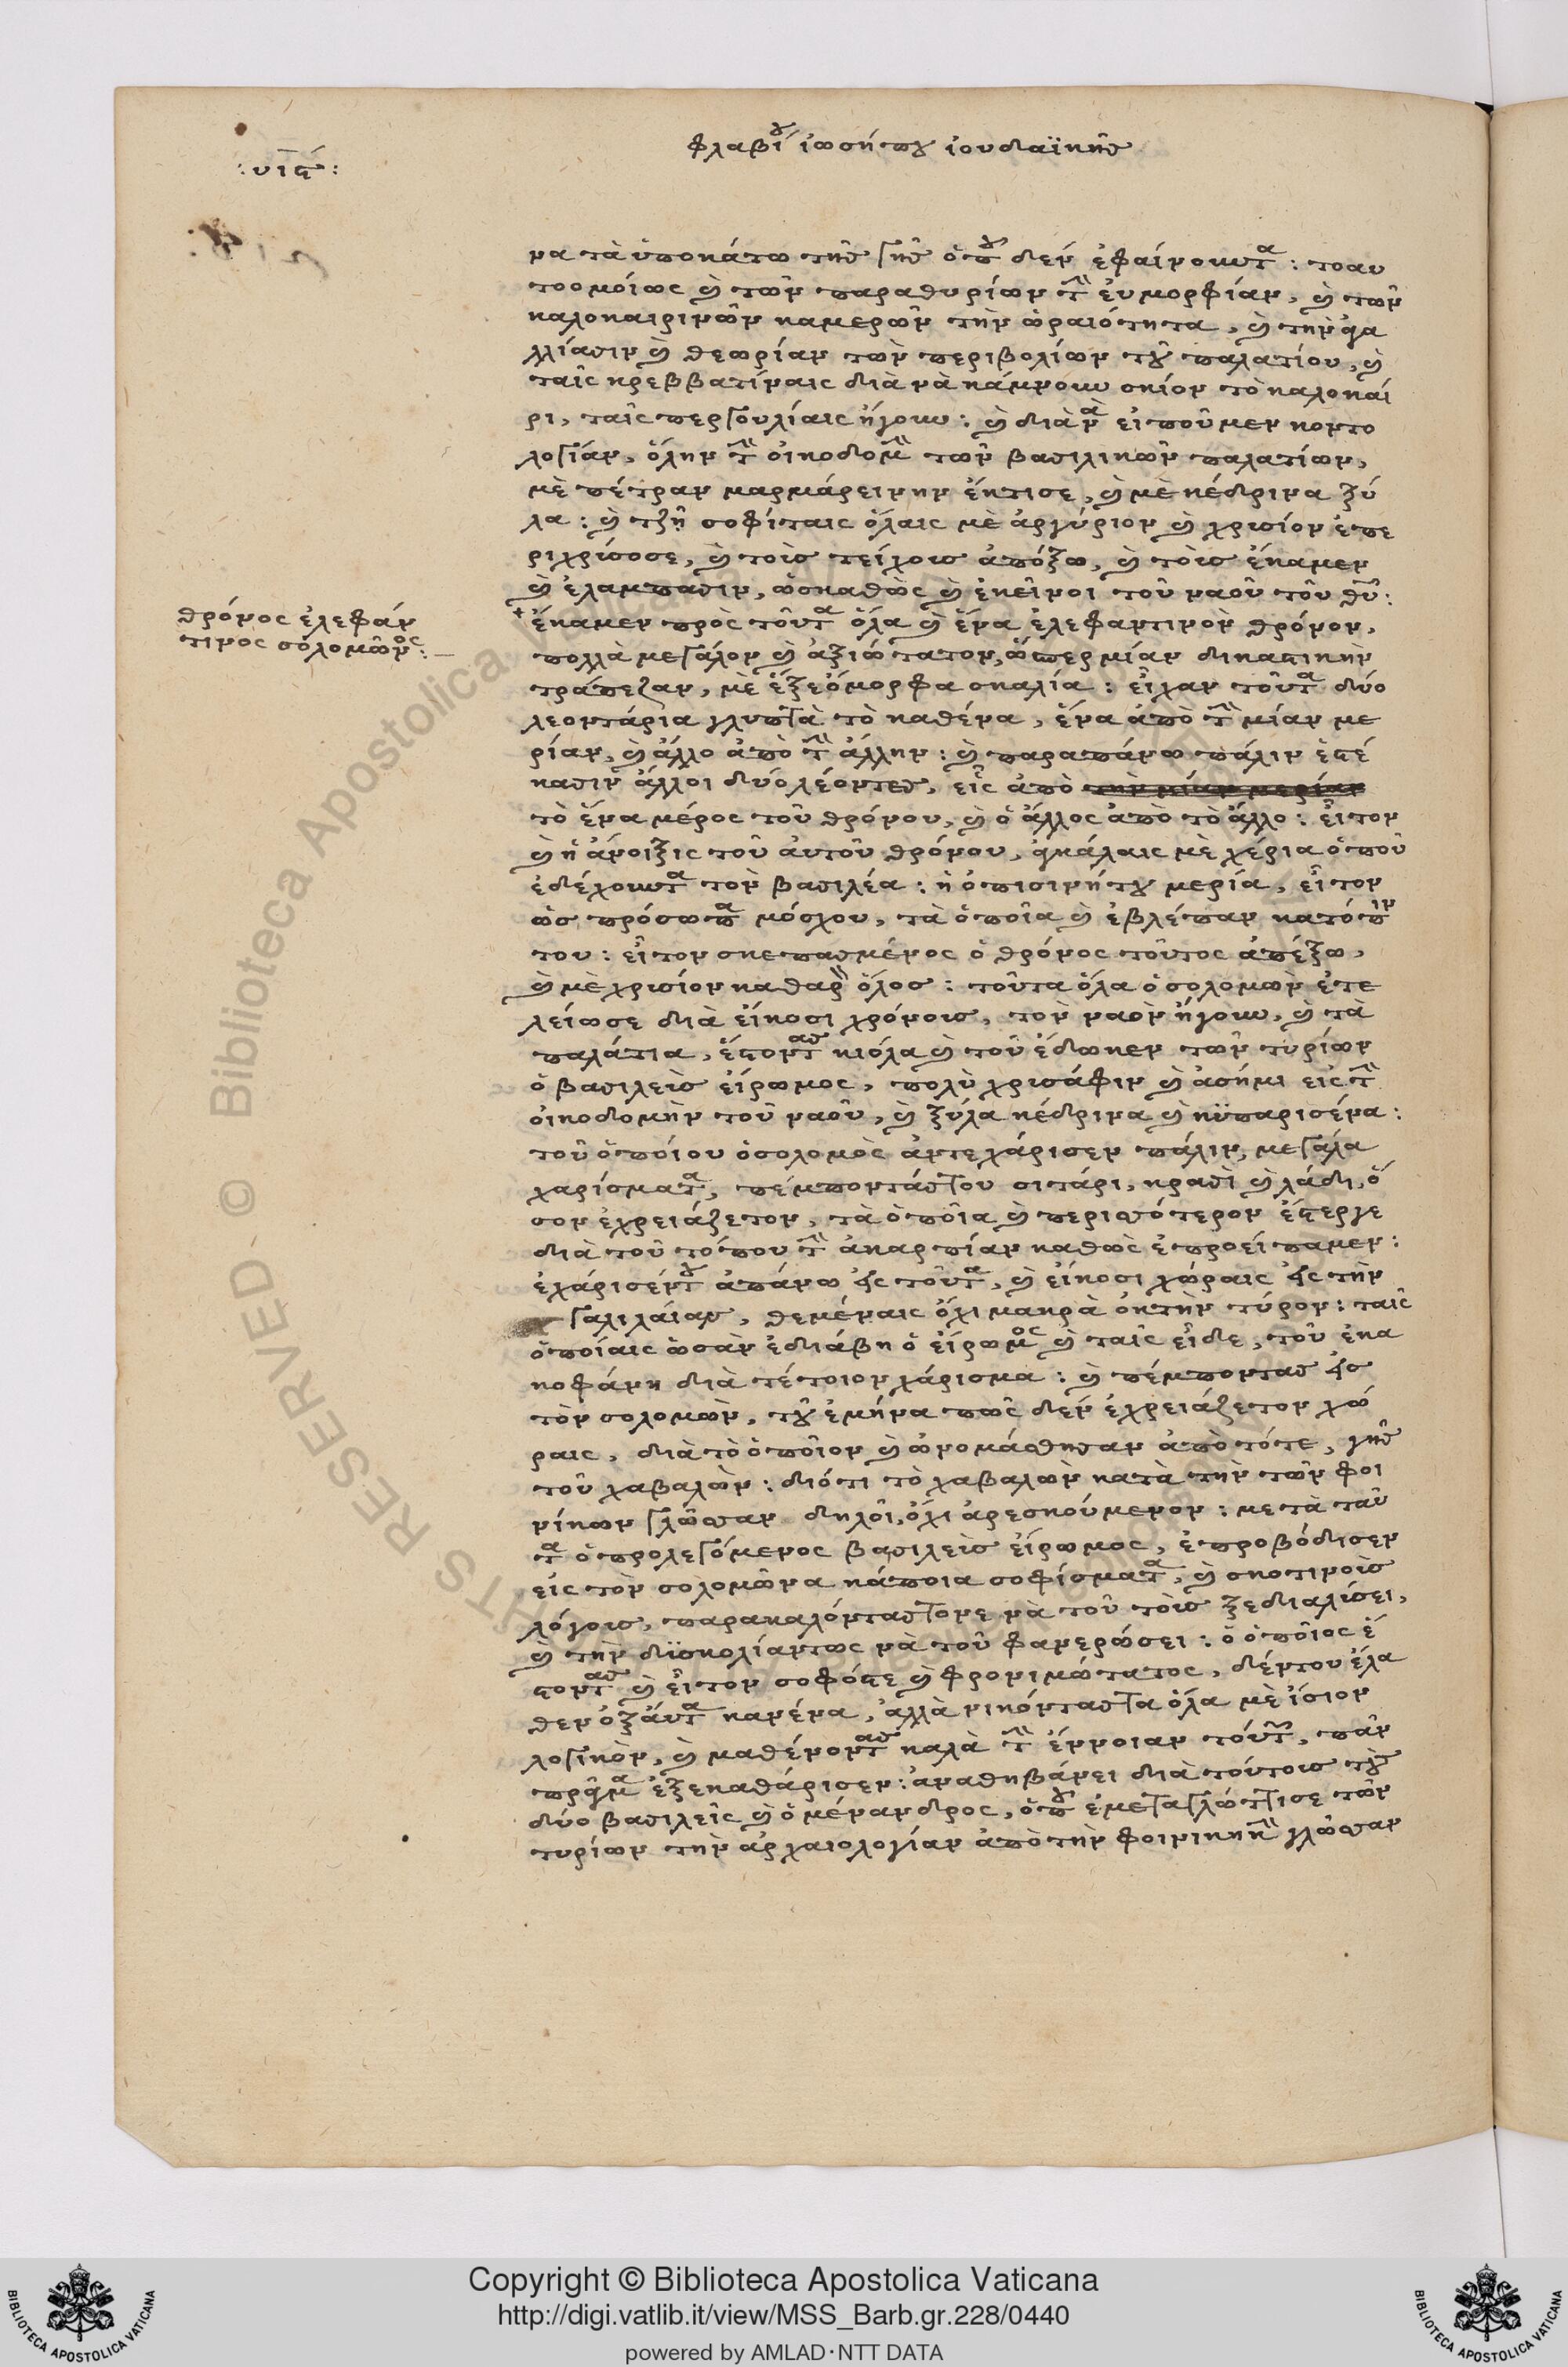 φλαβίου ἰωσήπου ἰουδαϊκῆς
:υιϛ:
να τὰ ὑποκάτω τῆς γῆς ὁποῦ δὲν ἐφαίνουντα: τοαυ
τοομοίως καὶ τῶν παραθυρίων τὴν ἐυμορφίαν, καὶ τῶν
καλοκαιρινῶν καμερῶν τὴν ὡραιότητα, καὶ τὴν ἀγα
λλίασιν καὶ θεωρίαν τῶν περιβολίων τοῦ παλατίου, καὶ
ταῖς κρεββατίναις διὰ νὰ κάμνουν σκίον τὸ καλοκαί
ρι, ταῖς περγουλίαις ἤγουν: καὶ διὰ νὰ εἰποῦμεν κοντο
λογίαν, ὅλην τὴν οἰκοδομὴν τῶν βασιλικῶν παλατίων,
μὲ πέτραν μαρμάρεινην ἔκτισε, καὶ μὲ κέδρινα ξύ
λα: καὶ τζῆ σοφίταις ὅλαις μὲ ἀργύριον καὶ χρισίον ἐπε
ριχρίσοσε, καὶ τοὶς τείχοις ἀπόξω, καὶ τὸις ἔκαμεν
καὶ ἐλαμπασιν, ὡσκαθὼς καὶ ἐκεῖνοι τοῦ ναοῦ τοῦ θῦ:
θρόνος ἐλεφάν
τινος σολομῶνος:
+ ἔκαμεν πρὸς τοῦτα ὅλα καὶ ἕνα ἐλεφαντινὸν θρόνον,
πολλὰ μεγάλον καὶ ἀξιώτατον, ὥσπερ μίαν δικαστικὴν
τράπεζαν, μὲ ἑξεόμορφα σκαλία: εἶχαν τοῦτα δύο
λεοντάρια γλυπτὰ τὸ καθένα, ἕνα ἀπὸ τὴν μίαν με
ρίαν, καὶ ἄλλο ἀπὸ τὴν ἄλλην: καὶ παραπάνω πάλιν ἐστέ
κασιν ἄλλοι δύο λέοντες, εἷς ἀπὸ τὴν μίαν μερίαν
τὸ ἕνα μέρος τοῦ θρόνου, καὶ ὁ ἄλλος ἀπὸ τὸ ἄλλο: εἶτον
καὶ ἡ ἄνοιξις τοῦ ἀυτοῦ θρόνου, ἀγκάλαις μὲ χέρια ὁποῦ
ἐδέχουντα τὸν βασιλέα: ἡ ὀπισινήτου μερία, εἶτον
ὡς πρόσωπα μόσχου, τὰ ὁποῖα καὶ ἐβλέπαν κατόπιν
του: εἶτον σκεπασμένος ὁ θρόνος τοῦτος ἀπέξω,
καὶ μὲ χρισίον καθαρὸν ὅλος: τοῦτα ὅλα ὁ σολομὼν ἐτε
λείωσε διὰ εἴκοσι χρόνοις, τὸν ναὸν ἤγουν, καὶ τὰ
παλάτια, ἔστοντας κιόλα καὶ τοῦ ἔδωκεν τῶν τυρίων
ὁ βασιλεὶς εἴρωμος, πολὺ χρισάφιν καὶ ἀσήμι εἰς τὴν
οἰκοδομὴν τοῦ ναοῦ, καὶ ξύλα κέδρινα καὶ κϋπαρισένα:
τοῦ ὁποίου ὁσολομὸς ἀντεχάρισεν πάλιν, μεγάλα
χαρίσματα, πέμποντάστου σιτάρι, κρασὶ καὶ λάδι, ὅ
σον ἐχρειάζετον, τὰ ὁποῖα καὶ περισσότερον ἔστεργε
διὰ τοῦ τόπου τὴν ἀκαρπίαν καθὼς ἐπροείπαμεν:
ἐχάρισέντου ἀπάνω εἰς τοῦτα, καὶ εἴκοσι χώραις εἰς τὴν
γαλιλάιαν, θεμέναις ὄχι μακρὰ ὀκτὴν τύρον: ταῖς
ὁποίαις ὡσὰν ἐδιάβη ὁ εἴρωμος καὶ ταῖς εἶδε, τοῦ ἐκα
κοφάνη διὰ τέτοιον χάρισμα: καὶ πέμποντας εἰς
τὸν σολομὼν, τοῦ ἐμήνα πῶς δὲν ἐχρειάζετον χώ
ραις, διὰ τὸ ὁποῖον καὶ ὠνομάσθησαν ἀπὸ τότε, γῆς
τοῦ χαβαλὼν: διότι τὸ χαβαλὼν κατὰ τὴν τῶν φοι
νίκων γλῶσσαν δηλοῖ, ὄχι ἀρεσκούμενον: μετὰ ταῦ
τα ὁ προλεγόμενος βασιλεὶς εἴρωμος, ἐπροβόδισεν
εἰς τὸν σολομῶνα κάποια σοφίσματα, καὶ σκοτινοὶς
λόγοις, παρακαλόνταστονε νὰ τοῦ τὸις ξεδιαλίσει,
καὶ τὴν δϊσκολίαντως νὰ τοῦ φανερώσει: ὁ ὁποῖος ἔ
στοντας καὶ εἶτον σοφόστε καὶ φρονιμώτατος, δέντου ἔλα
θεν ὀξάυτα κανένα, ἀλλὰ νικόνταστα ὅλα μὲ ἴσιον
λογικὸν, καὶ μαθένοντας καλὰ τὴν ἔννοιαν τούτων, πᾶν
πρᾶγμα ἐξεκαθάρισεν: ἀναθηβάνει διὰ τούτοις τοὺς
δύο βασιλεῖς καὶ ὁ μένανδρος, ὁποῦ ἐμεταγλώττισε τῶν
τυρίων τὴν ἀρχαιολογίαν ἀπὸ τὴν φοινικηκὴν γλῶσσαν
Copyright © Biblioteca Apostolica Vaticana
http://digi.vatlib.it/view/MSS_Barb.gr.228/0440
powered by AMLAD·NTT DATA